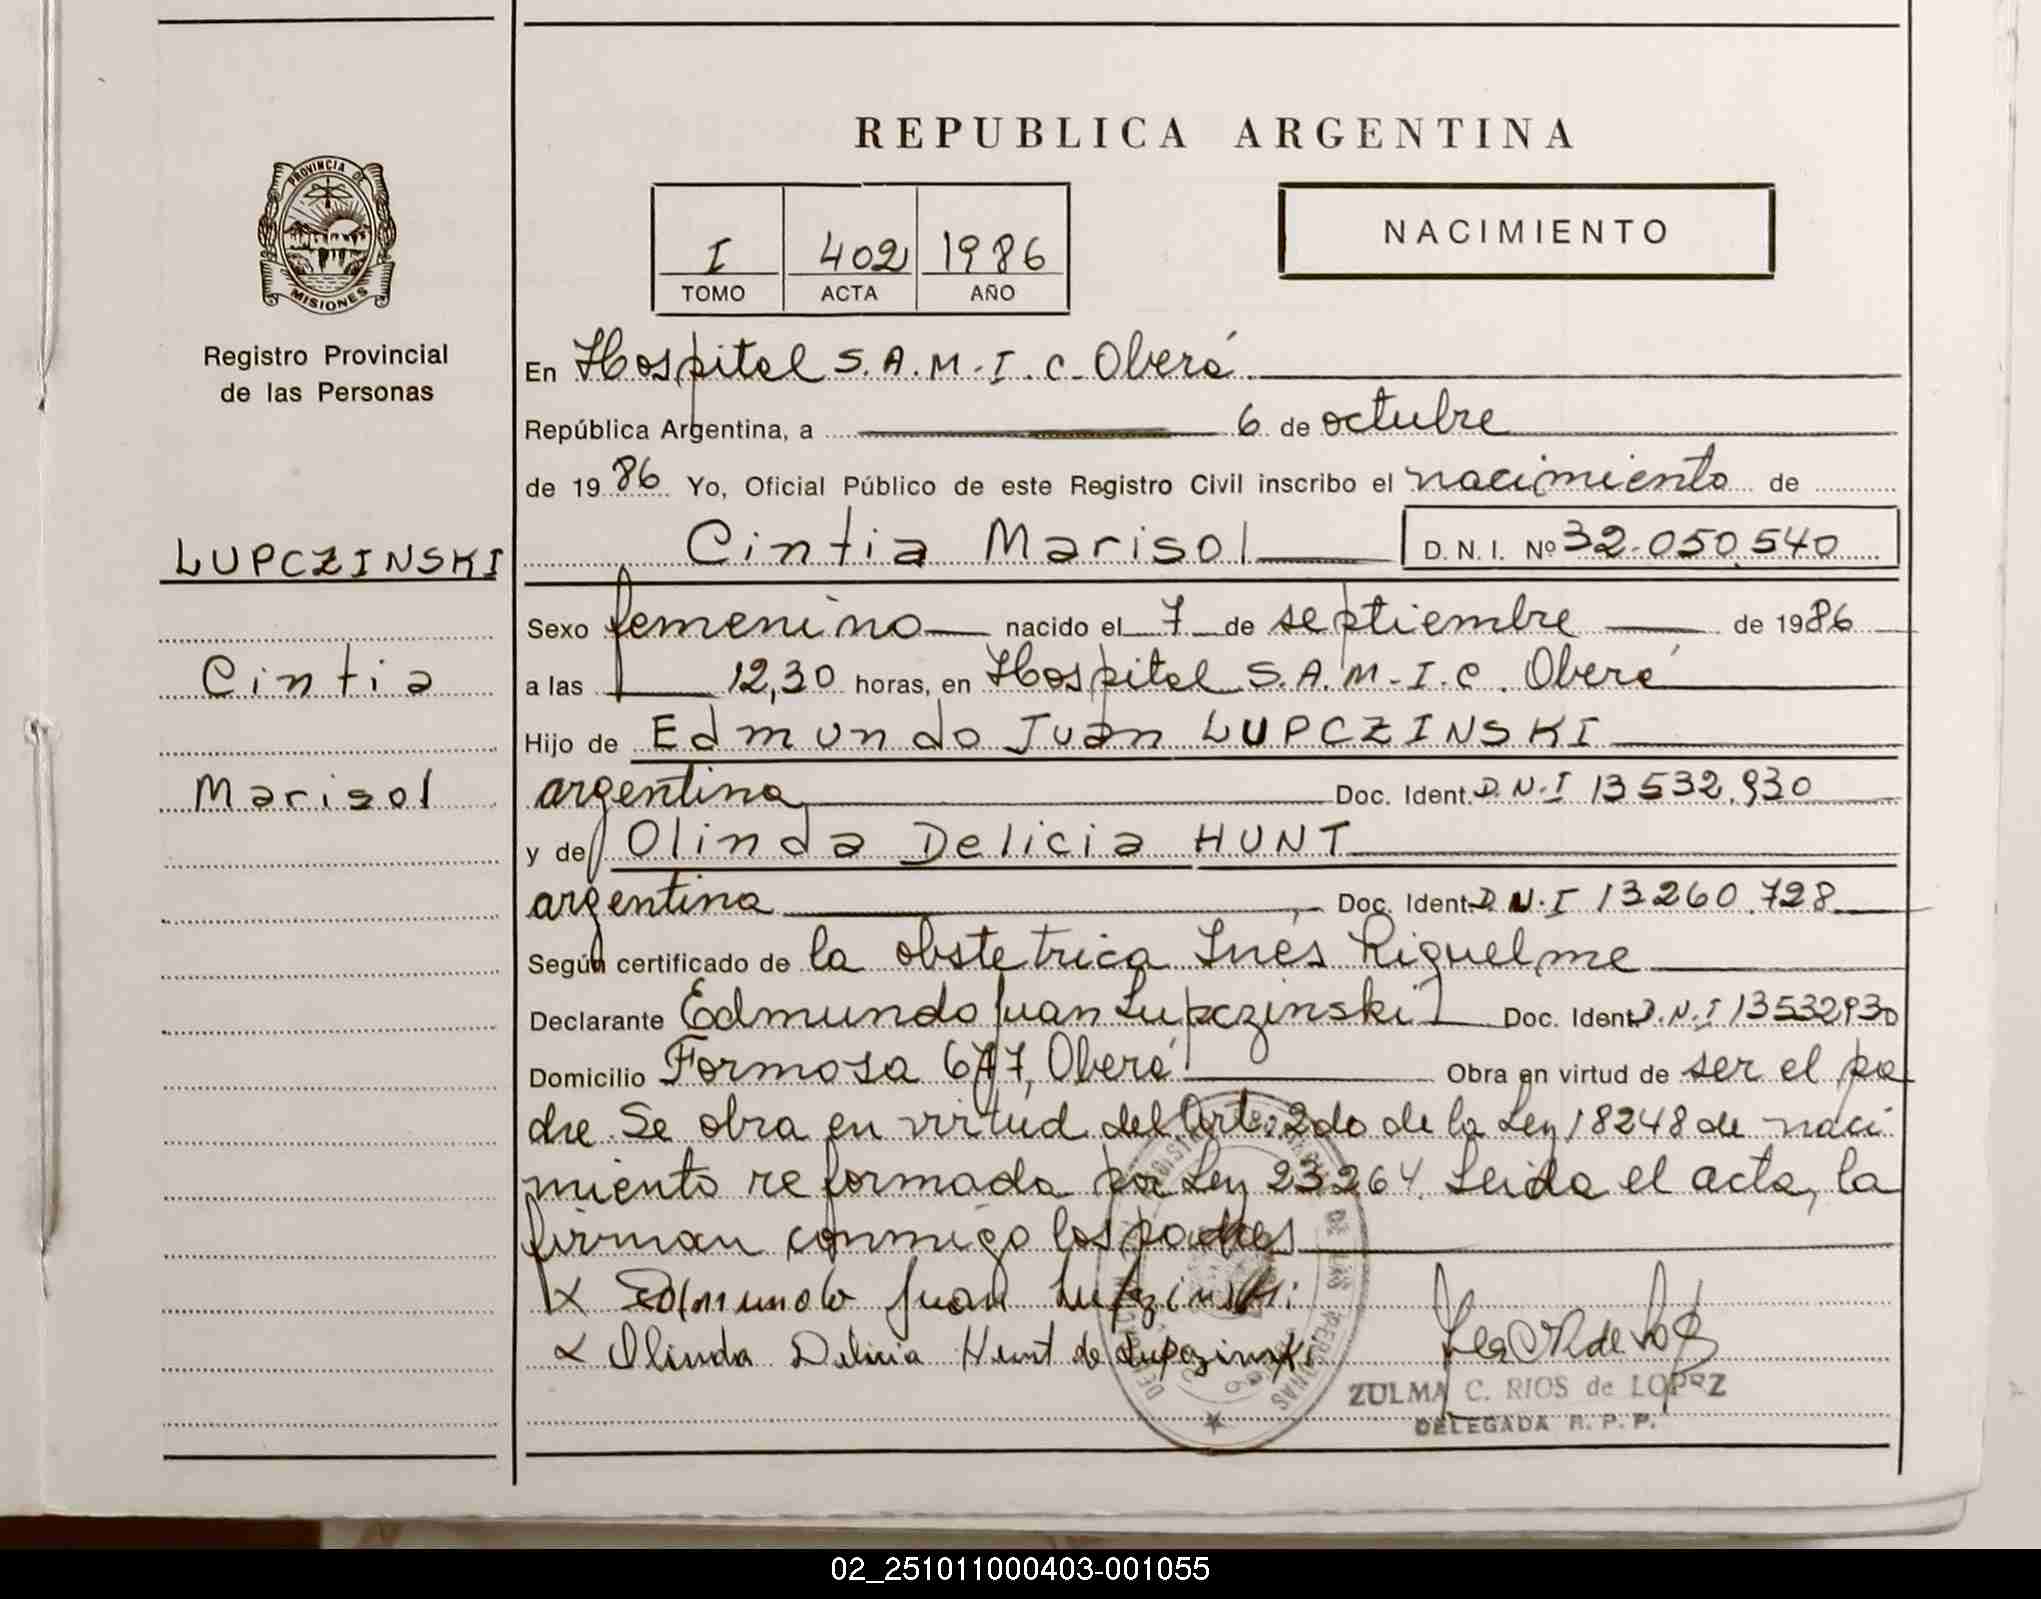 REPUBLICA ARGENTINA
PROVINCIA DE
MISIONES
Registro Provincial
de las Personas
NACIMIENTO
I 402 1986
TOMO ACTA AÑO
En Hospital S.A.M.I.C. Oberá
República Argentina, a 6 de octubre
de 1986 Yo, Oficial Público de este Registro Civil inscribo el nacimiento de
LUPCZINSKI
Cintia Marisol D.N.I. Nº 32.050.540
Cintia
Marisol
Sexo femenino nacido el 7 de septiembre de 1986
a las 12,30 horas, en Hospital S.A.M.I.C. Oberá
Hijo de Edmundo Juan LUPCZINSKI
argentina Doc. Ident. D.N.I 13532.930
y de Olinda Delicia HUNT
argentina, Doc. Ident. D.N.I 13260.728
Según certificado de la obstetrica Inés Riquelme
Declarante Edmundo Juan Lupczinski Doc. Ident. D.N.I 13532930
Domicilio Formosa 677, Oberá Obra en virtud de ser el pa
dre. Se obra en virtud del Art. 2do de la Ley 18248 de naci
miento reformada por Ley 23264. Leida el acta, la
firman conmigo los padres
X Edmundo Juan Lupczinski
X Olinda Delicia Hunt de Lupczinski
ZULMA C. RIOS de LOPEZ
DELEGADA R. P. P.
DE LAS PERSONAS
02_251011000403-001055